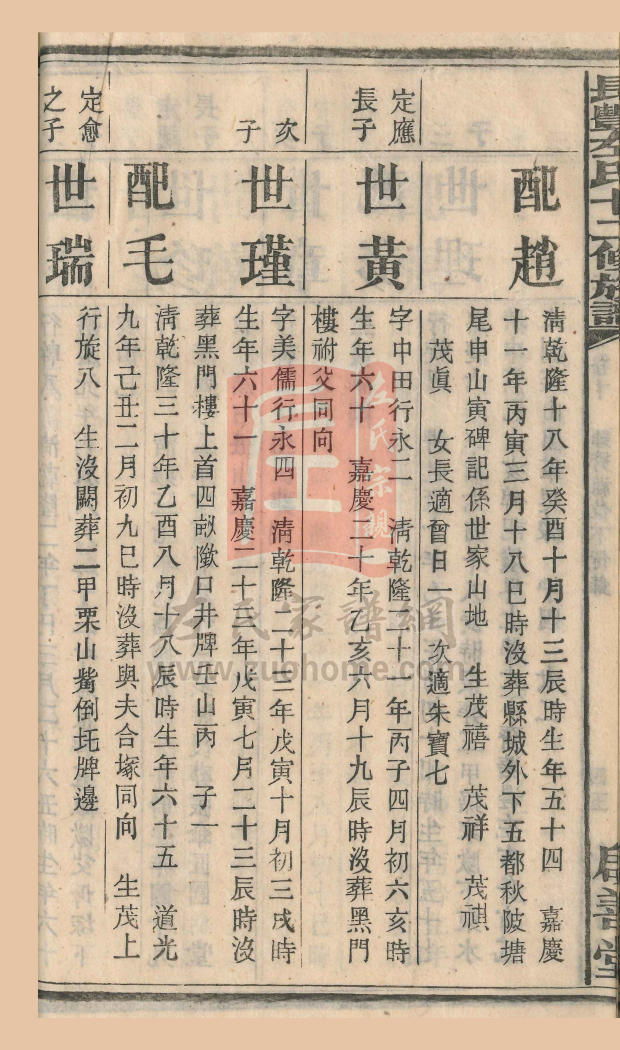 長豐左氏十二修族譜
啟善堂
配趙
清乾隆十八年癸酉十月十三辰時生年五十四 嘉慶
十一年丙寅三月十八巳時沒葬縣城外下五都秋陂塘
尾申山寅碑記係世家山地 生茂禧 茂祥 茂祺
茂眞 女長適曾日一 次適朱寶七
定應
長子
世黃
字中田行永二 清乾隆二十一年丙子四月初六亥時
生年六十 嘉慶二十年乙亥六月十九辰時沒葬黑門
樓祔父同向
次
子
世瑾
字美儒行永四 清乾隆二十三年戊寅十月初三戌時
生年六十一 嘉慶二十三年戊寅七月二十三辰時沒
葬黑門樓上首四畝墩口井牌壬山丙 子一
配毛
清乾隆三十年乙酉八月十八辰時生年六十五 道光
九年己丑二月初九巳時沒葬與夫合塚同向 生茂上
定愈
之子
世瑞
行旋八 生沒闕葬二甲栗山觜倒坑牌邊
左氏宗親
左氏家譜網
www.zuohome.com